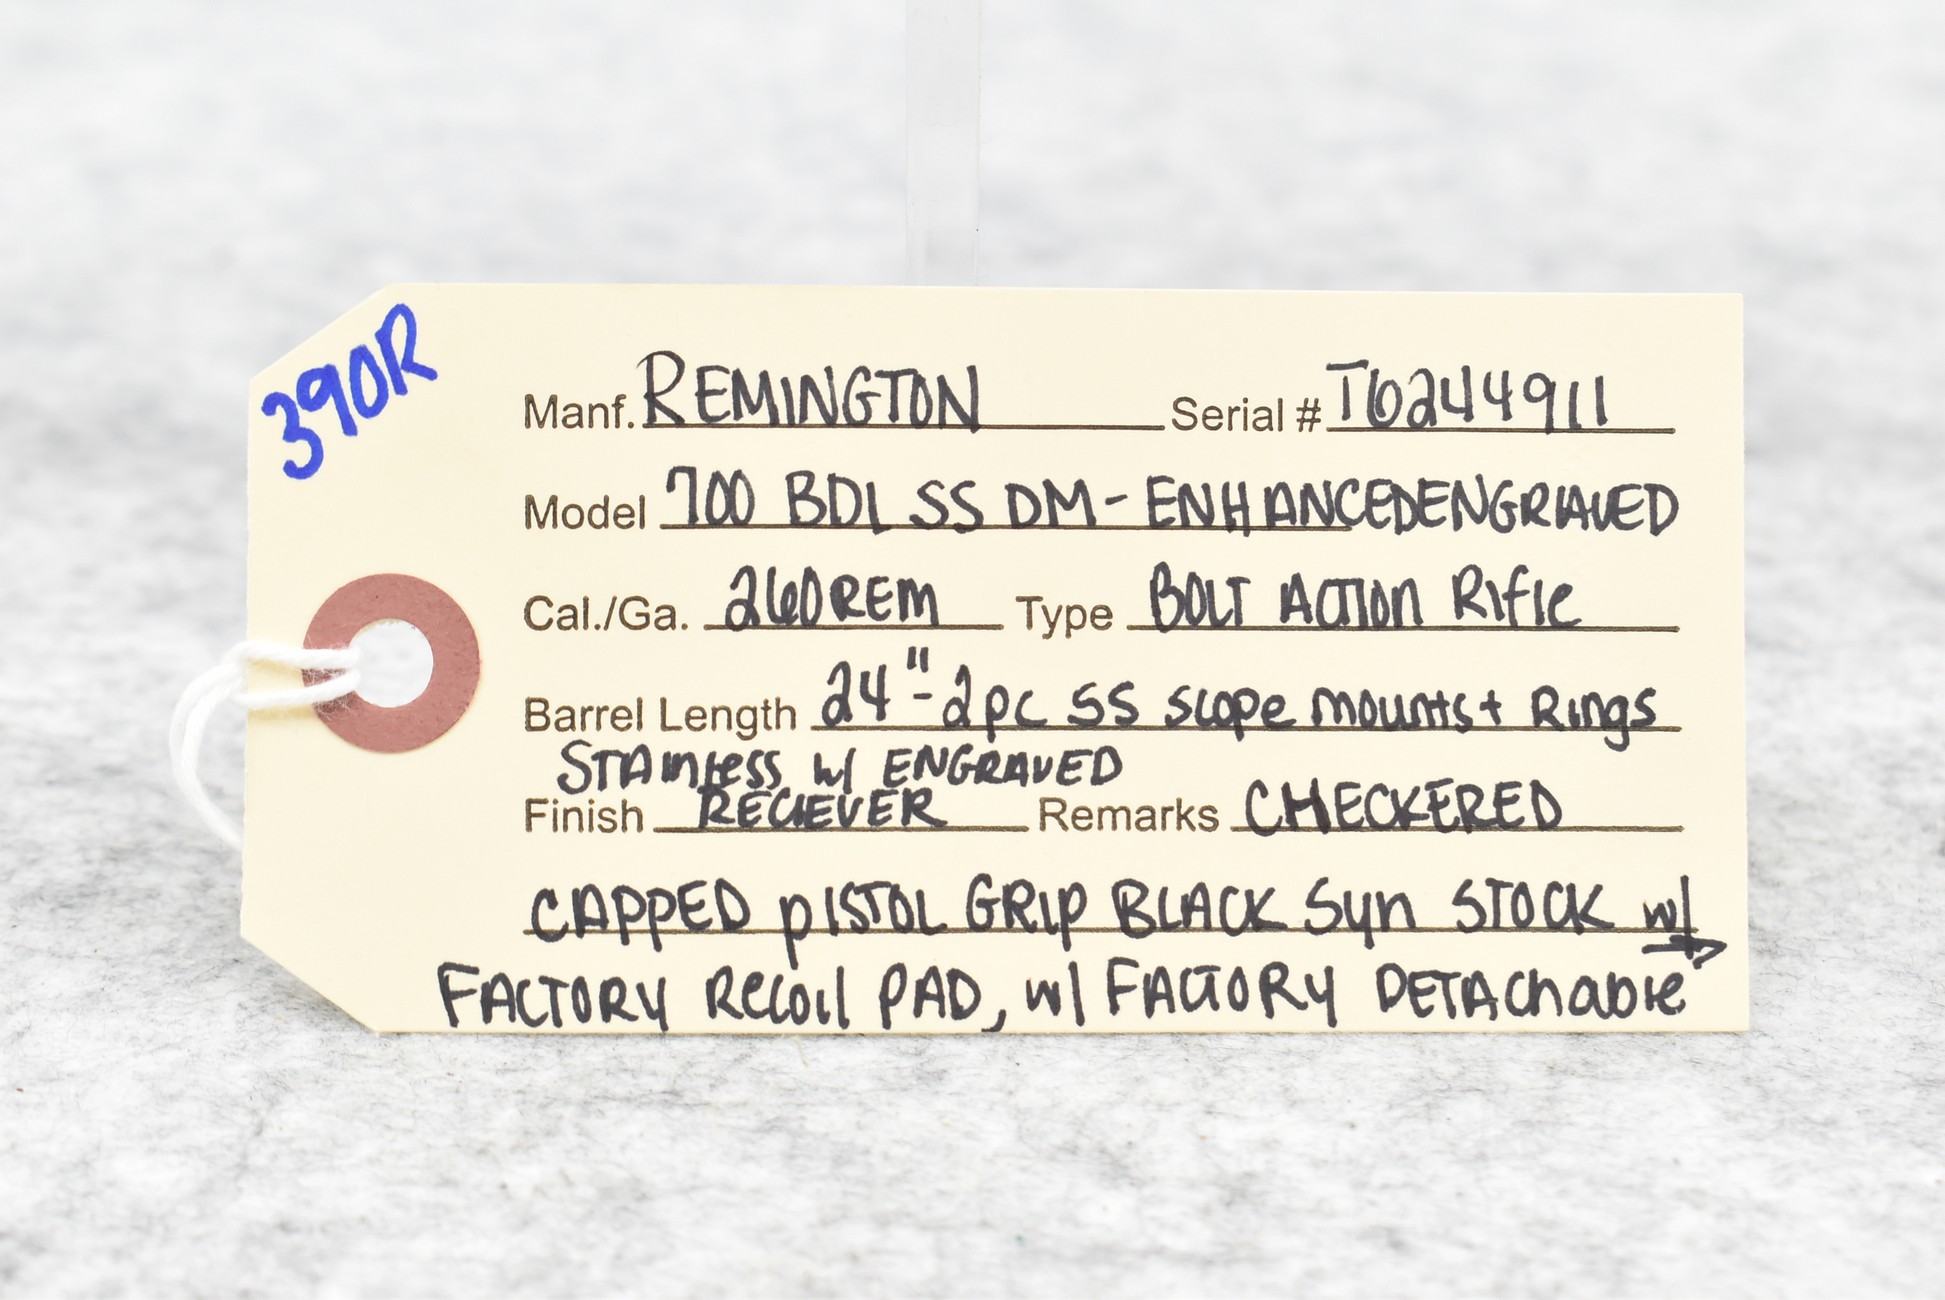 390R
Manf. REMINGTON Serial # T6244911
Model 700 BDL SS DM - ENHANCED ENGRAVED
Cal./Ga. 260 REM Type BOLT ACTION RIFle
Barrel Length 24" - 2pc SS Scope mounts + Rings
STAINless w/ ENGRAVED
Finish RECIEVER Remarks CHECKERED
CAPPED pISTOL GRIP BLACK Syn STOCK w/ →
FACTORY Recoil PAD, w/ FACTORY DETAChable